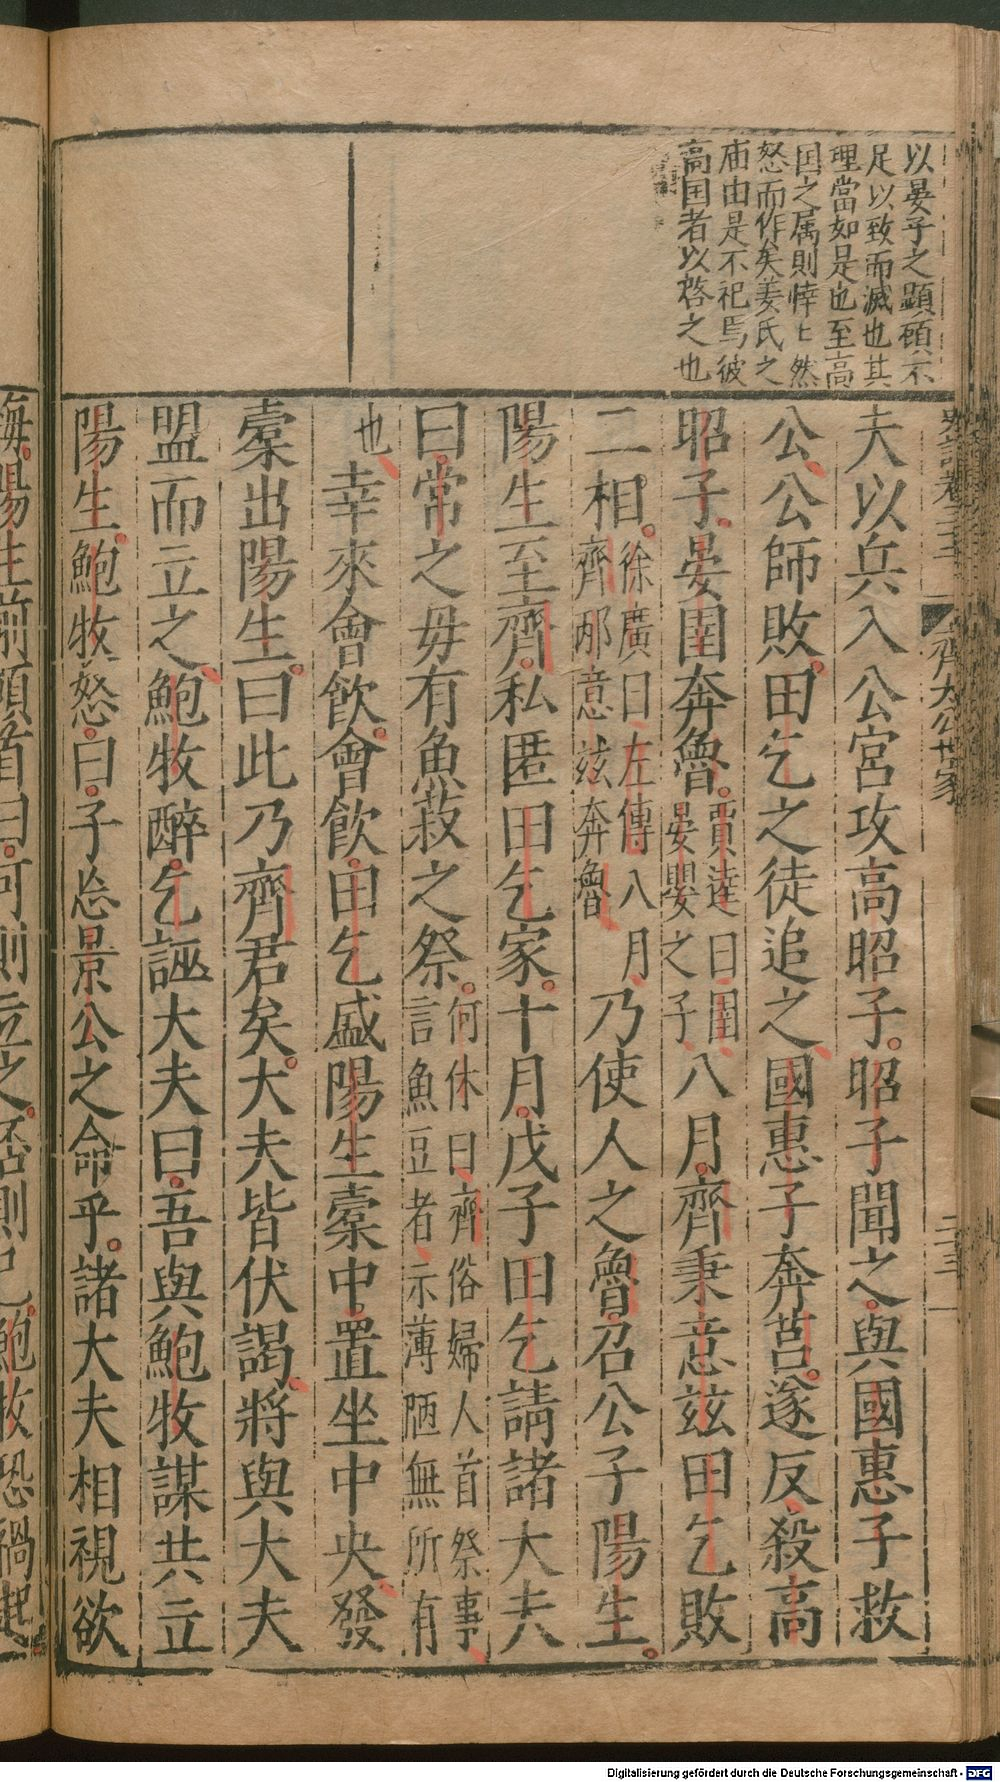 以晏子之顕碩不
足以致而滅也其
理當如是也至高
国之属則悻〻然
怒而作矣姜氏之
庙由是不祀焉彼
高国者以啓之也
史記卷三十二
齊太公世家
二十三
夫以兵入公宮攻高昭子。昭子聞之。與國惠子救
公、公師敗。田乞之徒追之、國惠子奔莒。遂反殺高
昭子。晏圉奔魯。賈逵曰圉、晏嬰之子、八月。齊秉意茲田乞敗
二相。徐廣曰、左傳八月、齊邴意茲奔魯乃使人之魯。召公子陽生。
陽生至齊。私匿田乞家。十月。戊子田乞請諸大夫
曰。常之毋有魚菽之祭。何休曰、齊俗婦人首祭事、言魚豆者、示薄陋無所有
也、幸來會飲。會飲。田乞盛陽生橐中。置坐中央、發
橐出陽生。曰此乃齊君矣。大夫皆伏謁、將與大夫
盟而立之、鮑牧醉。乞誣大夫曰。吾與鮑牧謀共立
陽生。鮑牧怒。曰。子忘景公之命乎。諸大夫相視欲
悔。陽生前頓首曰。可則立之。否則已。鮑牧恐禍起
Digitalisierung gefördert durch die Deutsche Forschungsgemeinschaft - DFG